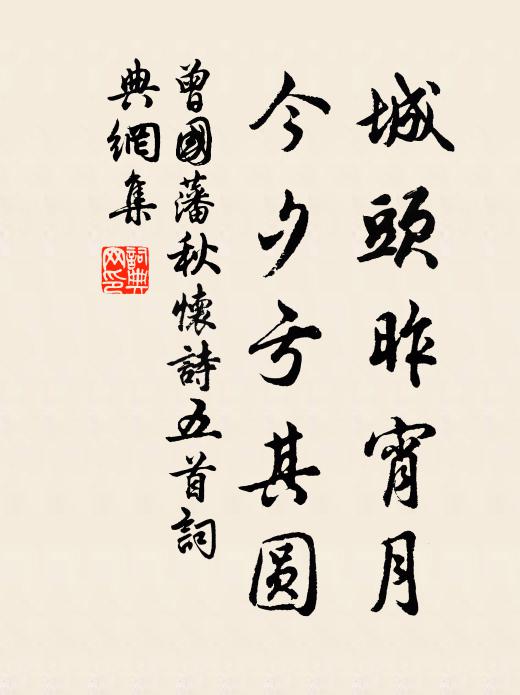 城頭昨宵月
今夕亏其圆
曾國藩秋懷詩五首詞
典網集
詞典網印